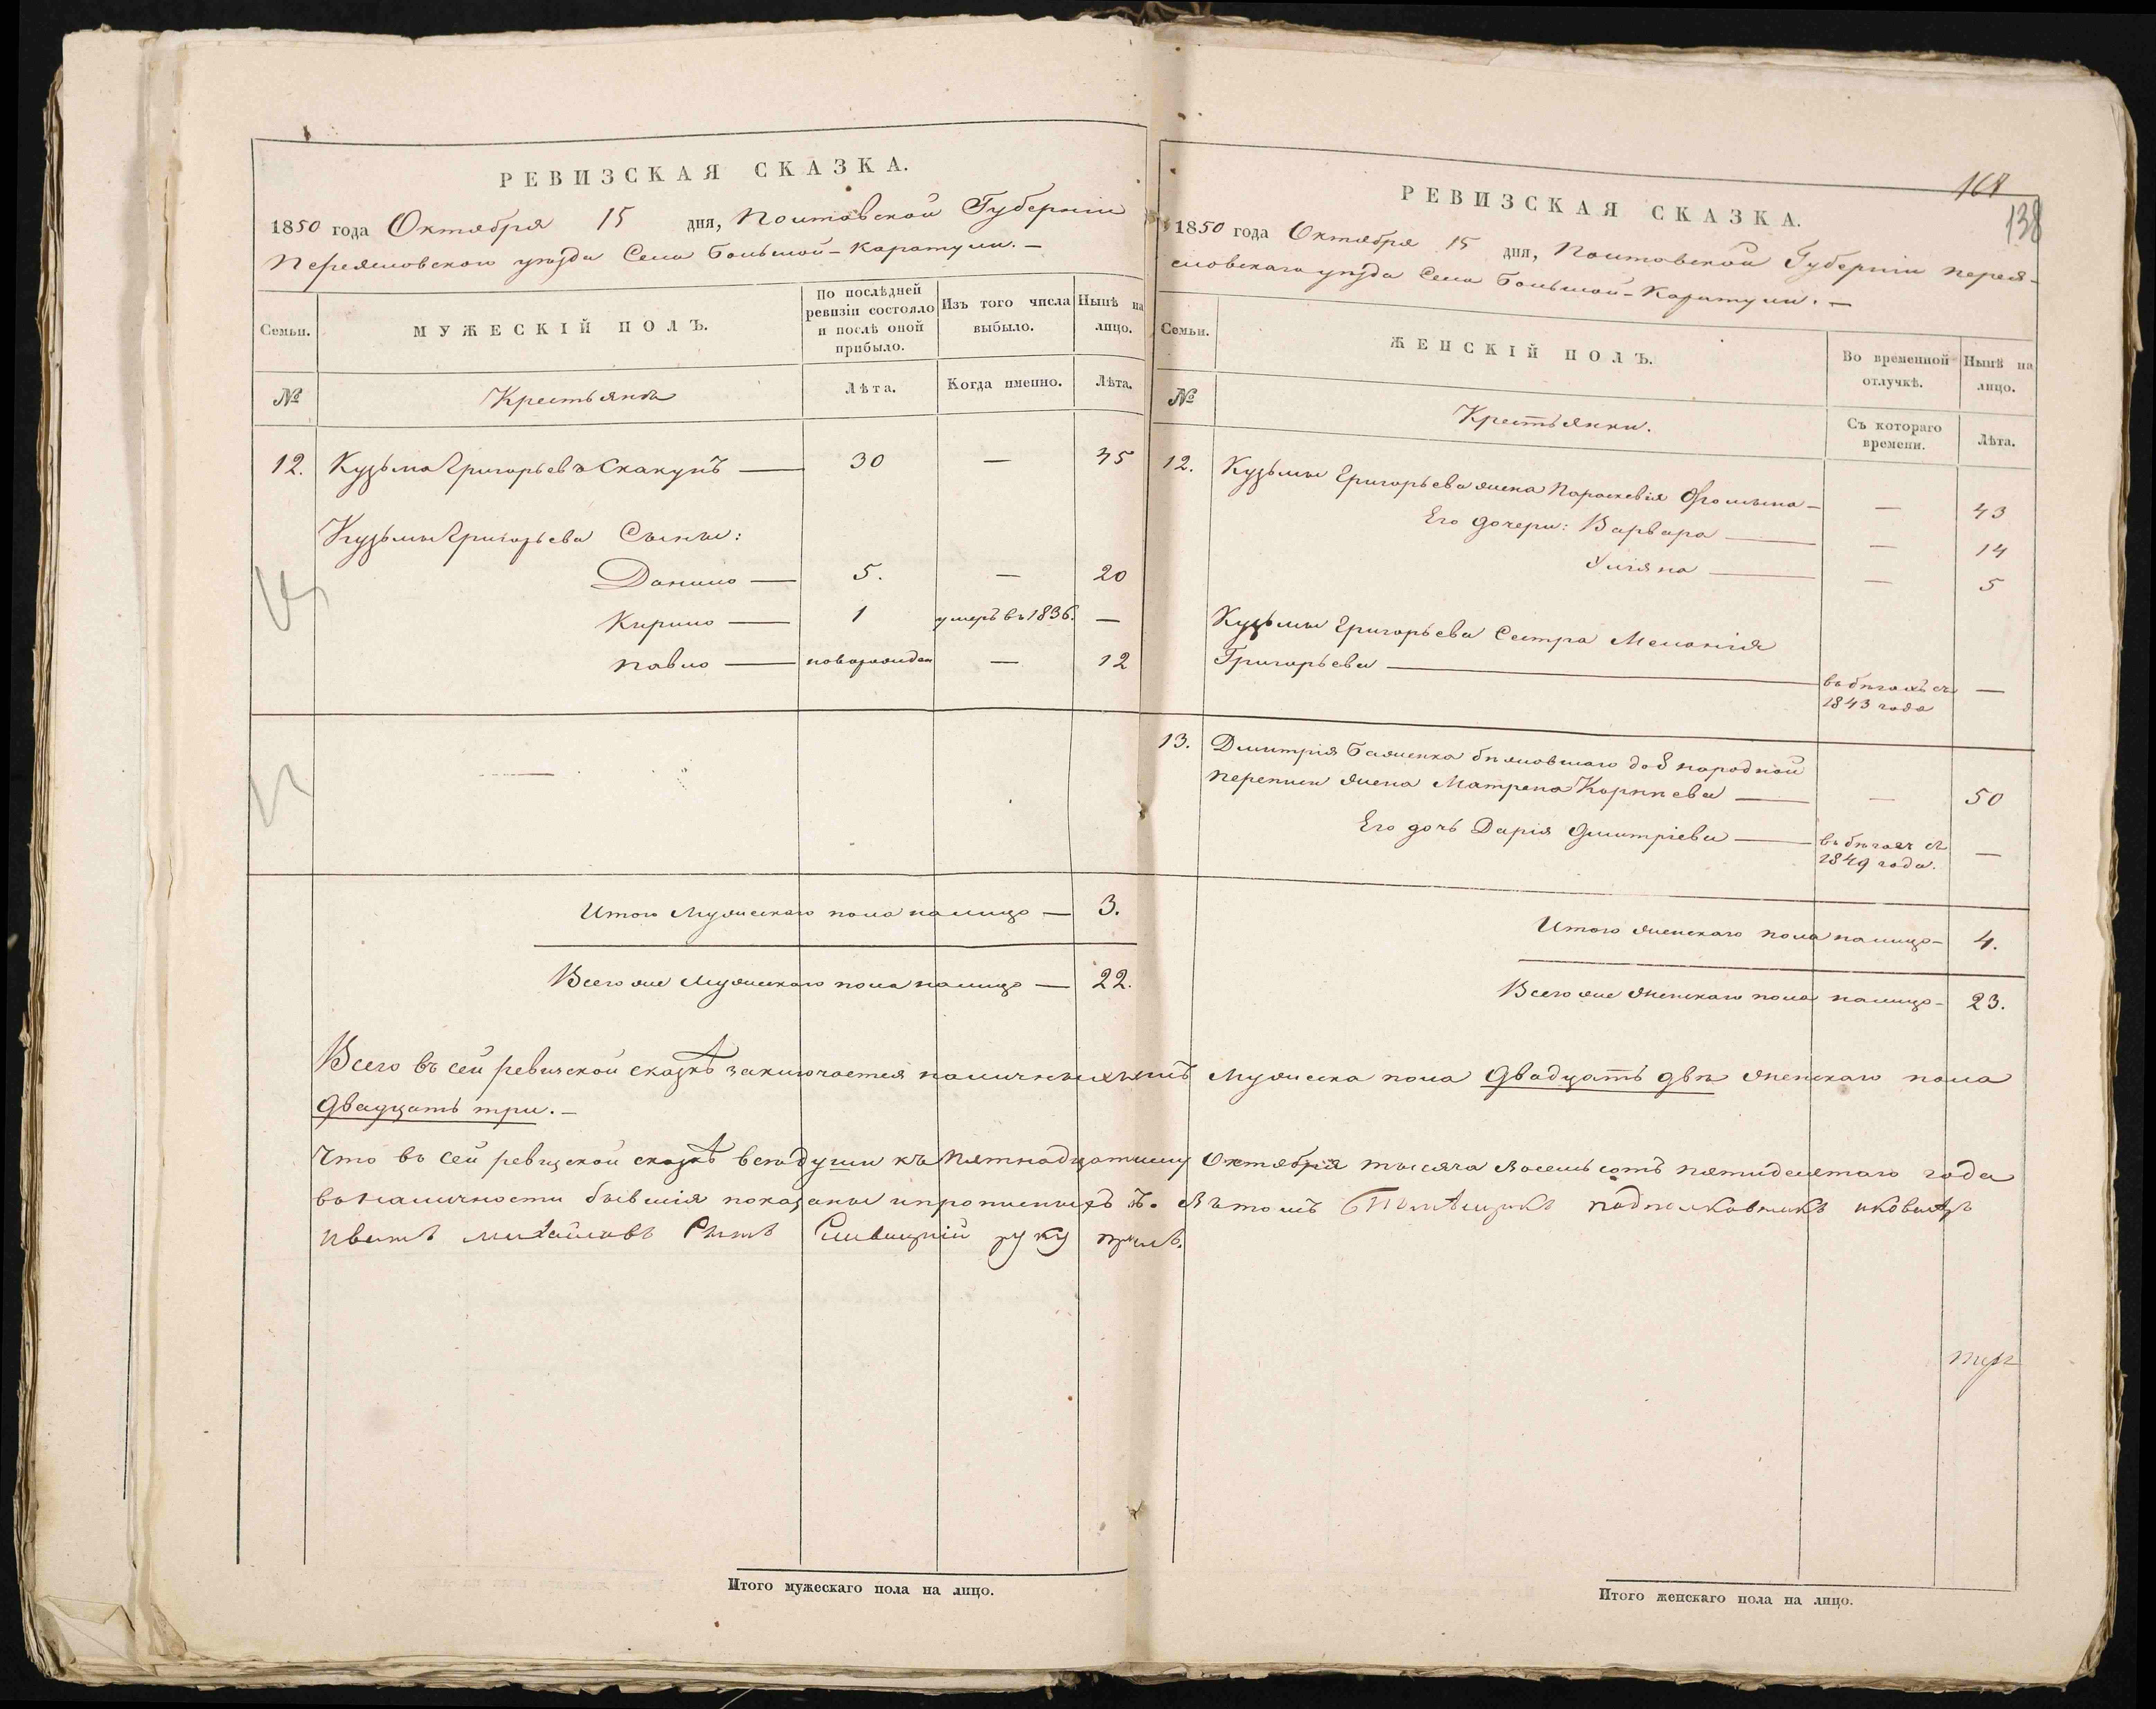 РЕВИЗСКАЯ СКАЗКА.
1850 года Октября 15 дня, Полтавской Губерніи
Переяславскаго уѣзда Села Большой-Каратули. —
Семьи.
МУЖЕСКІЙ ПОЛЪ.
По послѣдней ревизіи состояло и послѣ оной прибыло.
Изъ того числа выбыло.
Нынѣ на лицо.
№
Крестьяня
Лѣта.
Когда именно.
Лѣта.
12. Кузьма Григорьевъ Скакунъ — 30 — 45
Кузьмы Григорьева Сыны:
Данило — 5. — 20
Кирило — 1 умеръ въ 1836. —
Павло — новорожден — 12
Итого Мужескаго пола налицо — 3.
Всего же Мужескаго пола налицо — 22.
РЕВИЗСКАЯ СКАЗКА.
138
1850 года Октября 15 дня, Полтавской Губерніи Перея-
славскаго уѣзда Села Большой-Каратули. —
Семьи.
ЖЕНСКІЙ ПОЛЪ.
Во временной отлучкѣ.
Нынѣ на лицо.
№
Крестьянки.
Съ котораго времени.
Лѣта.
12. Кузьмы Григорьева жена Параскевія — — 43
Его дочери: Варвара — — 14
Уліяна — — 5
Кузьмы Григорьева Сестра Меланія
Григорьева — въ бѣгахъ съ 1843 года —
13. Дмитрія бѣжавшаго до 8 народной
переписи жена Матрена Корнѣева — — 50
Его дочь Дарія Дмитріева — въ бѣгах съ 1849 года. —
Итого женскаго пола налицо — 4.
Всего же женскаго пола налицо — 23.
Всего въ сей ревизской сказкѣ заключается наличныхъ Мужеска пола Двадцать двѣ женскаго пола
Двадцать три. —
Что въ сей ревизской сказкѣ всѣ души къ Пятнадцатому Октября тысяча восемь сотъ пятидесятаго года
въ наличности бывшія показаны и прописныхъ нѣтъ. Въ томъ Помѣщикъ подполковникъ и кавалеръ
Иванъ Михайловъ Сынъ руку прил.
Итого мужескаго пола на лицо.
Итого женскаго пола на лицо.